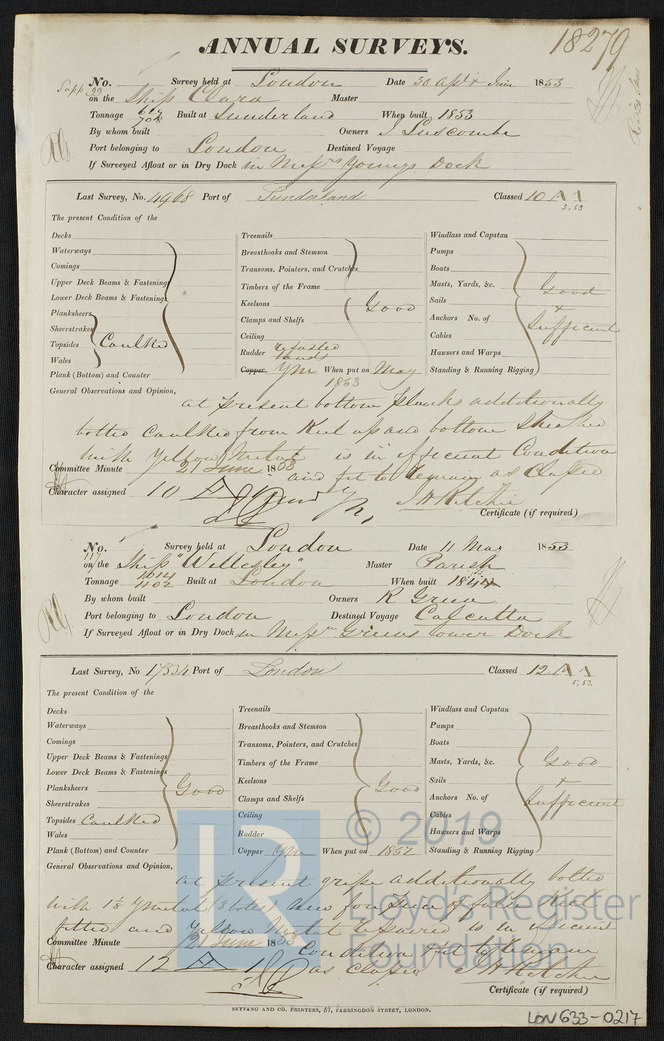 ANNUAL SURVEYS.
18279
No. 92 Survey held at London Date 30 Apl & June 1853
on the Ship Clara Master
Tonnage Built at Sunderland When built 1853
By whom built Owners J Luscombe
Port belonging to London Destined Voyage
If Surveyed Afloat or in Dry Dock in Messrs Youngs Dock
Last Survey, No. 4968 Port of Sunderland Classed 10 A 1
3.53
The present Condition of the
Decks Treenails Windlass and Capstan
Waterways Breasthooks and Stemson Pumps
Comings Transoms, Pointers, and Crutches Boats
Upper Deck Beams & Fastenings Timbers of the Frame Masts, Yards, &c. Good
Lower Deck Beams & Fastenings Keelsons Good Sails &
Planksheers Clamps and Shelfs Anchors No. of Sufficient
Sheerstrakes Ceiling Cables
Topsides Caulked Rudder Hawsers and Warps
Wales Copper YM When put on May 1853 Standing & Running Rigging
Plank (Bottom) and Counter
General Observations and Opinion,
at present bottom planks additionally
bolted caulked from Keel up and bottom Sheathed
with Yellow Metal is in efficient Condition
Committee Minute 21 June 1853 and fit to remain as Classed
Character assigned 10 A 1 J H Ritchie
Certificate (if required)
No. 117 Survey held at London Date 11 May 1853
on the Ship "Wellesley" Master Parish
Tonnage 1014 1102 Built at London When built 1844
By whom built Owners R Green
Port belonging to London Destined Voyage Calcutta
If Surveyed Afloat or in Dry Dock in Messrs Greens lower Dock
Last Survey, No. 17334 Port of London Classed 12 A 1
5.52
The present Condition of the
Decks Treenails Windlass and Capstan
Waterways Breasthooks and Stemson Pumps
Comings Transoms, Pointers, and Crutches Boats
Upper Deck Beams & Fastenings Timbers of the Frame Masts, Yards, &c. Good
Lower Deck Beams & Fastenings Keelsons Sails &
Planksheers Good Clamps and Shelfs Good Anchors No. of Sufficient
Sheerstrakes Ceiling Cables
Topsides Caulked Rudder Hawsers and Warps
Wales Copper YM When put on 1852 Standing & Running Rigging
Plank (Bottom) and Counter
General Observations and Opinion,
at present gripe additionally bolted
with new false Keel
fitted and Yellow Metal repaired is in efficient
Committee Minute 21 June 1853 Condition fit to remain
Character assigned 12 A 1 as Classed J H Ritchie
Certificate (if required)
SEYFANG AND CO. PRINTERS, 57, FARRINGDON STREET, LONDON.
LON633-0217
© 2019
LR
Lloyd's Register
Foundation